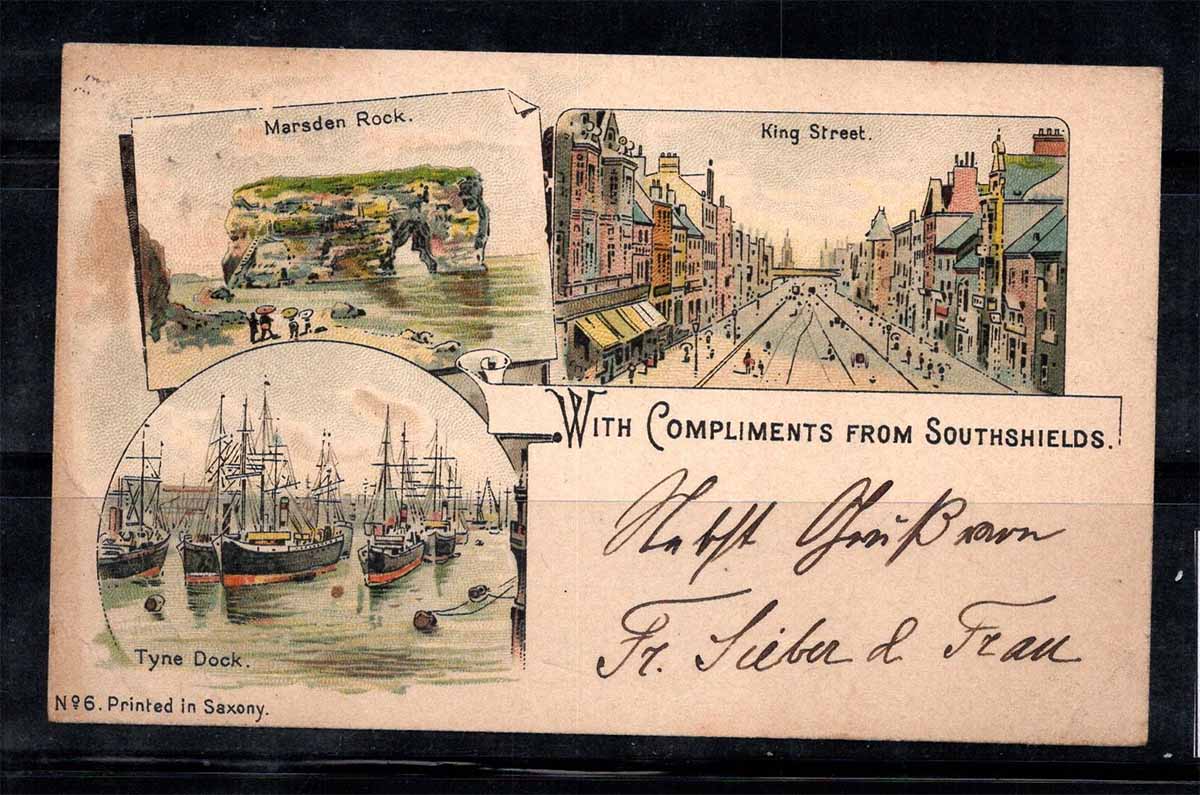 Marsden Rock.
King Street.
WITH COMPLIMENTS FROM SOUTHSHIELDS.
Nebst Gruß von
Fr. Sieber & Frau
Tyne Dock.
No6. Printed in Saxony.